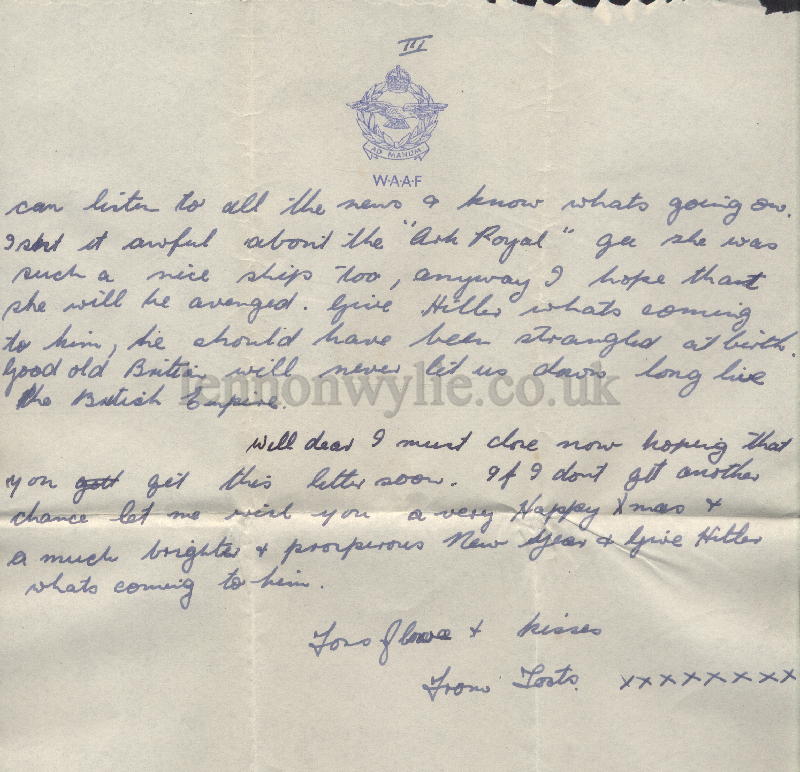 III
AD MANUM
W·A·A·F
can listen to all the news & know whats going on.
Isnt it awful about the "Ark Royal" gee she was
such a nice ship too, anyway I hope that
she will be avenged. Give Hitler whats coming
to him, he should have been strangled at birth.
Good old Britain will never let us down long live
the British Empire.
lennonwylie.co.uk
Well dear I must close now hoping that
you gett get this letter soon. If I dont get another
chance let me wish you a very Happy Xmas &
a much brighter & prosperous New Year & Give Hitler
whats coming to him.
Tons of love & kisses
From Tosts. xxxxxxxxx